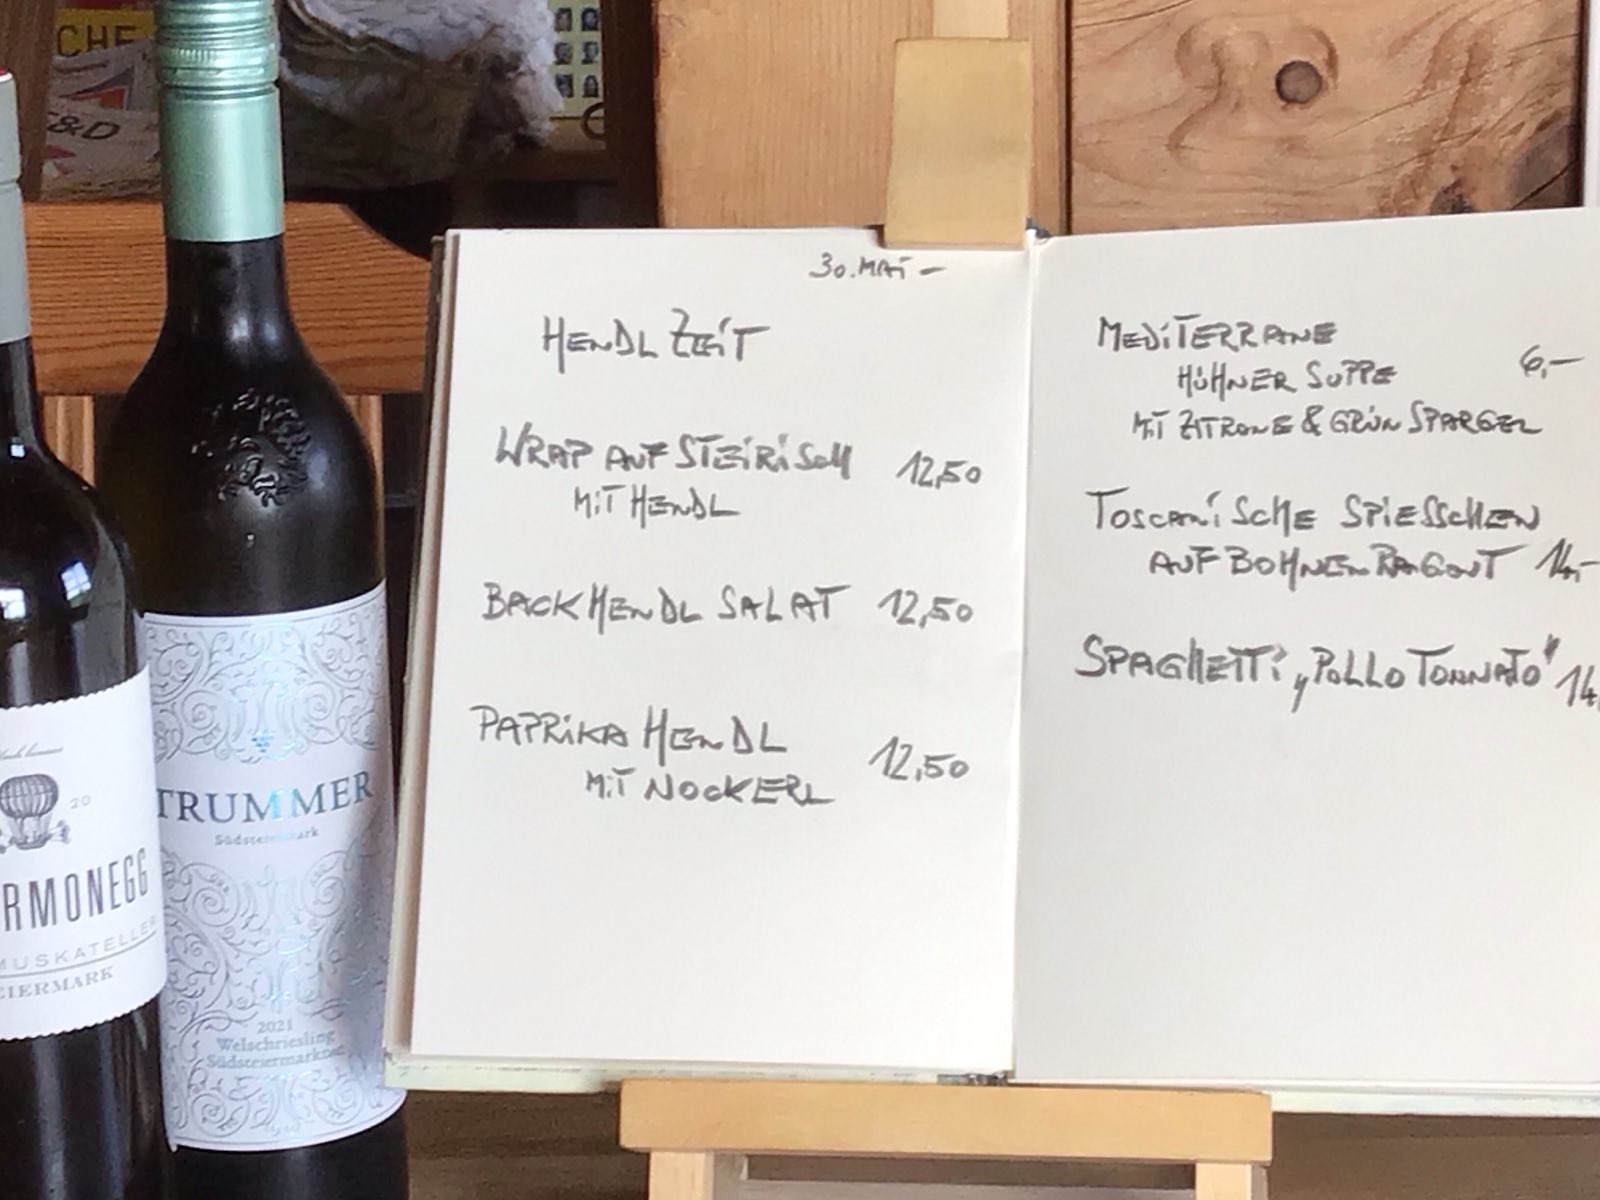 CHE
&D
30. MAI –
HENDL ZEIT
WRAP AUF STEIRISCH 12,50
MIT HENDL
BACKHENDL SALAT 12,50
PAPRIKA HENDL
MIT NOCKERL 12,50
MEDITERRANE
HÜHNER SUPPE 6,–
MIT ZITRONE & GRÜN SPARGEL
TOSCANISCHE SPIESSCHEN
AUF BOHNENRAGOUT 14,–
SPAGHETTI „POLLO TONNATO" 14,
20
RMONEGG
MUSKATELLER
EIERMARK
TRUMMER
Südsteiermark
2021
Welschriesling